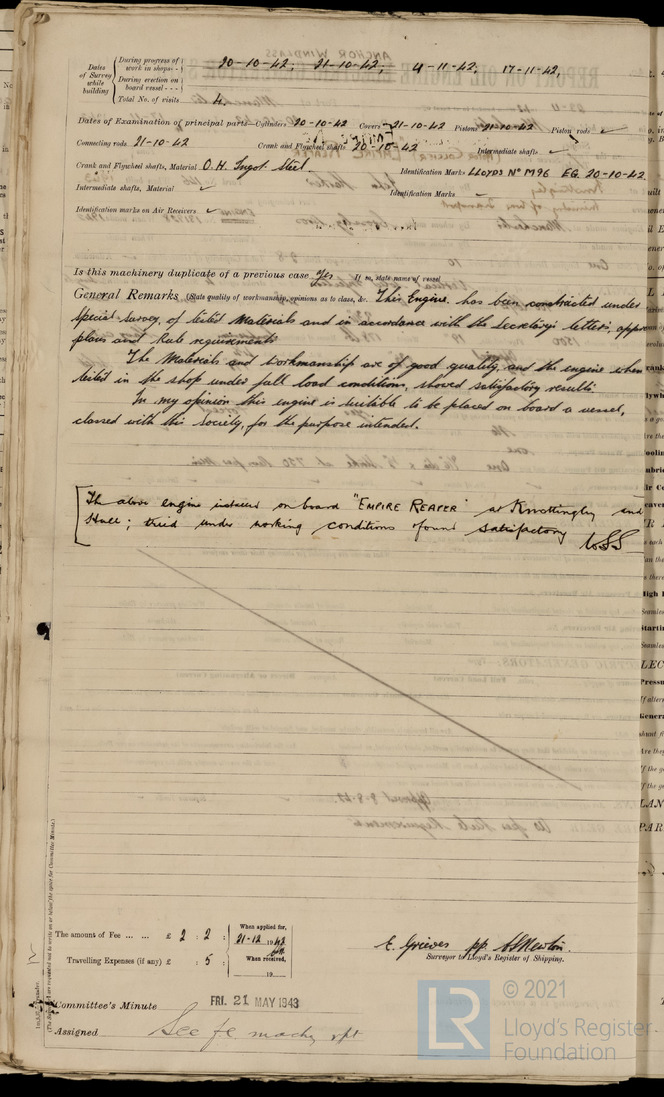 Dates of Survey while building
During progress of work in shops - - 20-10-42, 21-10-42, 4-11-42, 17-11-42,
During erection on board vessel - - -
Total No. of visits 4.
Dates of Examination of principal parts—Cylinders 20-10-42 Covers 21-10-42 Pistons 21-10-42 Piston rods ✓
Connecting rods 21-10-42 Crank and Flywheel shafts 20-10-42 Intermediate shafts ✓
Crank and Flywheel shafts, Material O.H. Ingot Steel. Identification Marks LLOYDS No M96 EG. 20-10-42
Intermediate shafts, Material ✓ Identification Marks
Identification marks on Air Receivers ✓
Is this machinery duplicate of a previous case Yes If so, state name of vessel
General Remarks (State quality of workmanship, opinions as to class, &c. This Engine, has been constructed under
special survey, of tested Materials and in accordance with the secretary's letters,
plans and Rule requirements
The Materials and workmanship are of good quality, and the engine when
tested in the shop under full load conditions, showed satisfactory results.
In my opinion this engine is suitable to be placed on board a vessel,
classed with this society, for the purpose intended.
The above engine installed on board "EMPIRE REAPER" at Knottingley and
Hull; tried under working conditions found satisfactory WSS
The amount of Fee ... ... £ 2 : 2 : When applied for, 21-12 1942
Travelling Expenses (if any) £ : 5 : When received, 19
E. Grieves pp.
Surveyor to Lloyd's Register of Shipping.
Committee's Minute FRI. 21 MAY 1943
Assigned See fe machy rpt
© 2021
LR Lloyd's Register
Foundation